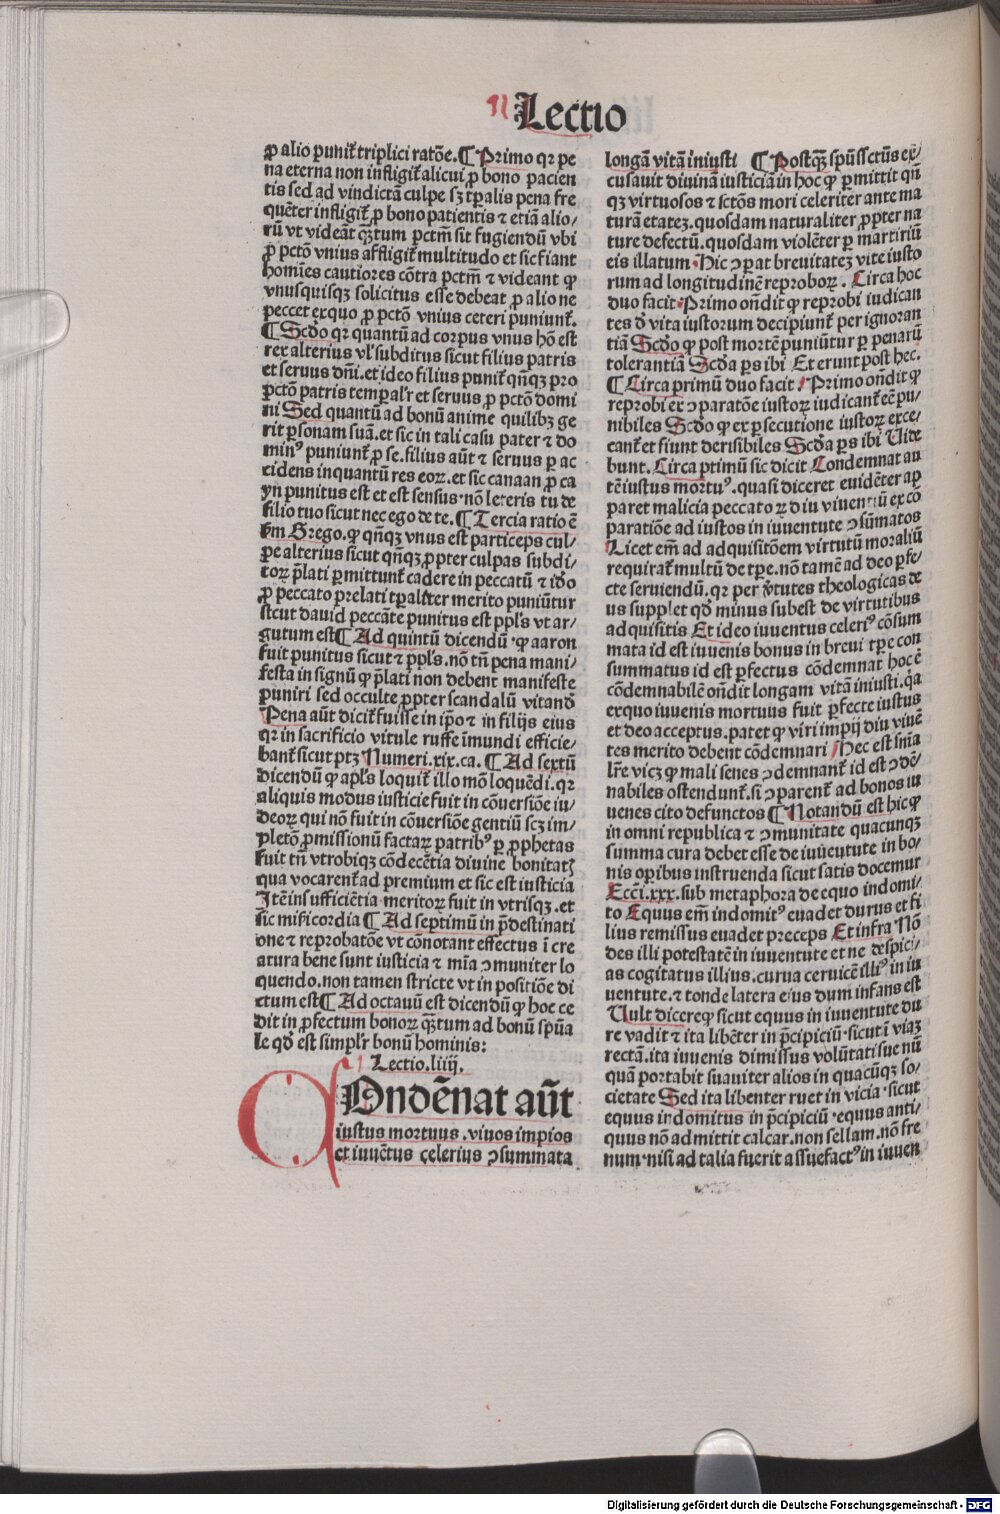 ¶ Lectio
ꝓ alio punit᷑ triplici ratōe. ¶ Primo qꝛ pe
na eterna non infligit᷑ alicui ꝓ bono pacien
tis sed ad vindictā culpe sꝫ tp̄alis pena fre
quēter infligit᷑ ꝓ bono patientis ⁊ etiā alio/
rū vt videāt qȝtum pctm̄ sit fugiendū vbi
ꝓ pctō vnius affligit᷑ multitudo et sic fiant
homīes cautiores cōtra pctm̄ ⁊ videant ꝙ
vnusquisqꝫ solicitus esse debeat ꝓ alio ne
peccet exquo ꝓ pctō vnius ceteri puniunt᷑.
¶ Scd̄o qꝛ quantū ad corpus vnus hō est
res alterius vl' subditus sicut filius patris
et seruus dn̄i. et ideo filius punit᷑ qn̄qꝫ pro
pctō patris temꝑal'r et seruus ꝓ pctō domi
ni Sed quantū ad bonū anime quilibꝫ ge
rit ꝑsonam suā. et sic in tali casu pater ⁊ do
minꝰ puniunt᷑ ꝓ se. filius aūt ⁊ seruus ꝑ ac
cidens inquantū res eoꝝ. et sic canaan ꝓ ca
yn punitus est et est sensus. nō leteris tu de
filio tuo sicut nec ego de te. ¶ Tercia ratio ē
scd̄m Grego. ꝙ qn̄qꝫ vnus est particeps cul/
pe alterius sicut qn̄qꝫ ꝓpter culpas subdi/
toꝝ p̄lati ꝑmittunt᷑ cadere in peccatū ⁊ id̄o
ꝓ peccato prelati tp̄aliter merito puniūtur
sicut dauid peccāte punitus est ppl's vt ar/
gutum est ¶ Ad quintū dicendū ꝙ aaron
fuit punitus sicut ⁊ ppl's. nō tn̄ pena mani/
festa in signū ꝙ p̄lati non debent manifeste
puniri sed occulte ꝓpter scandalū vitand
Pena aūt dicit᷑ fuisse in ip̄o ⁊ in filijs eius
qꝛ in sacrificio vitule ruffe īmundi efficie/
bant᷑ sicut ptꝫ Numeri. xix. ca. ¶ Ad sextū
dicendū ꝙ apl's loquit᷑ illo mō loquēdi. qꝛ
aliquis modus iusticie fuit in cōuersiōe iu/
deoꝝ qui nō fuit in cōuersiōe gentiū scꝫ im/
pletō ꝓmissionū factaꝝ patribꝰ ꝑ ꝓphetas
fuit tn̄ vtrobiqꝫ cōdecētia diuine bonitatꝭ
qua vocarent᷑ ad premium et sic est iusticia
Itē insufficiētia meritoꝝ fuit in vtrisqꝫ. et
sic misericordia ¶ Ad septimū in p̄destinati
one ⁊ reprobatōe vt cōnotant effectus ī cre
atura bene sunt iusticia ⁊ mīa ↄmuniter lo
quendo. non tamen stricte vt in positiōe di
ctum est ¶ Ad octauū est dicendū ꝙ hoc ce
dit in ꝓfectum bonoꝝ qȝtum ad bonū sp̄ūa
le qd̄ est simpl'r bonū hominis:
Lectio. liiij.
COndēnat aūt
iustus mortuus. viuos impios
et iuuētus celerius ↄsummata
longā vitā iniusti ¶ Postqȝ sp̄ūs sctūs ex/
cusauit diuinā iusticiā in hoc ꝙ ꝑmittit qn̄
qꝫ virtuosos ⁊ sctōs mori celeriter ante ma
turā etateꝫ. quosdam naturaliter ꝓpter na
ture defectū. quosdam violēter ꝑ martiriū
eis illatum. Hic ↄꝑat breuitateꝫ vite iusto
rum ad longitudinē reproboꝝ. Circa hoc
duo facit. Primo on̄dit ꝙ reprobi iudican
tes d̄ vita iustorum decipiunt᷑ per ignoran
tiā Scd̄o ꝙ post mortē puniūtur ꝑ penarū
tolerantiā Scd̄a ꝑs ibi Et erunt post hec.
¶ Circa primū duo facit Primo on̄dit ꝙ
reprobi ex ↄparatōe iustoꝝ iudicant᷑ eē pu/
nibiles Scd̄o ꝙ ex ꝑsecutione iustoꝝ exce/
cant᷑ et fiunt derisibiles Scd̄a ꝑs ibi Uide
bunt. Circa primū sic dicit Condemnat au
tē iustus mortuꝰ. quasi diceret euidēter ap
paret malicia peccatoꝝ diu viuentiū ex cō
paratiōe ad iustos in iuuentute ↄsūmatos
Licet em̄ ad adquisitōem virtutū moraliū
requirat᷑ multū de tꝑe. nō tamē ad deo ꝑfe/
cte seruiendū. qꝛ per v̄tutes theologicas de
us supplet qd̄ minus subest de virtutibus
adquisitis Et ideo iuuentus celeriꝰ cōsum
mata id est iuuenis bonus in breui tꝑe con
summatus id est ꝑfectus cōdemnat hoc ē
cōdemnabilē on̄dit longam vitā iniusti. q̄a
exquo iuuenis mortuus fuit ꝑfecte iustus
et deo acceptus. patet ꝙ viri impij diu viuē
tes merito debent cōdemnari Hec est sn̄ia
lr̄e vicꝫ ꝙ mali senes ↄdemnant᷑ id est ↄdē/
nabiles ostendunt᷑. si ↄparent᷑ ad bonos iu
uenes cito defunctos ¶ Notandū est hic ꝙ
in omni republica ⁊ ↄmunitate quacunqꝫ
summa cura debet esse de iuuentute in bo/
nis oꝑibus instruenda sicut satis docemur
Ecci. xxx. sub metaphora de equo indomi/
to Equus em̄ indomitꝰ euadet durus et fi
lius remissus euadet preceps Et infra Nō
des illi potestatē in iuuentute et ne despici/
as cogitatus illius. curua ceruicē illiꝰ in iu
uentute. ⁊ tonde latera eius dum infans est
Uult dicere ꝙ sicut equus in iuuentute du
re vadit ⁊ ita libēter in p̄cipiciū. sicut ī viaꝫ
rectā. ita iuuenis dimissus volūtati sue nū
quā portabit suauiter alios in quacūqꝫ so/
cietate Sed ita libenter ruet in vicia. sicut
equus indomitus in p̄cipiciū. equus anti/
quus nō admittit calcar. non sellam. nō fre
num. nisi ad talia fuerit assuefactꝰ in iuuen
Digitalisierung gefördert durch die Deutsche Forschungsgemeinschaft - DFG